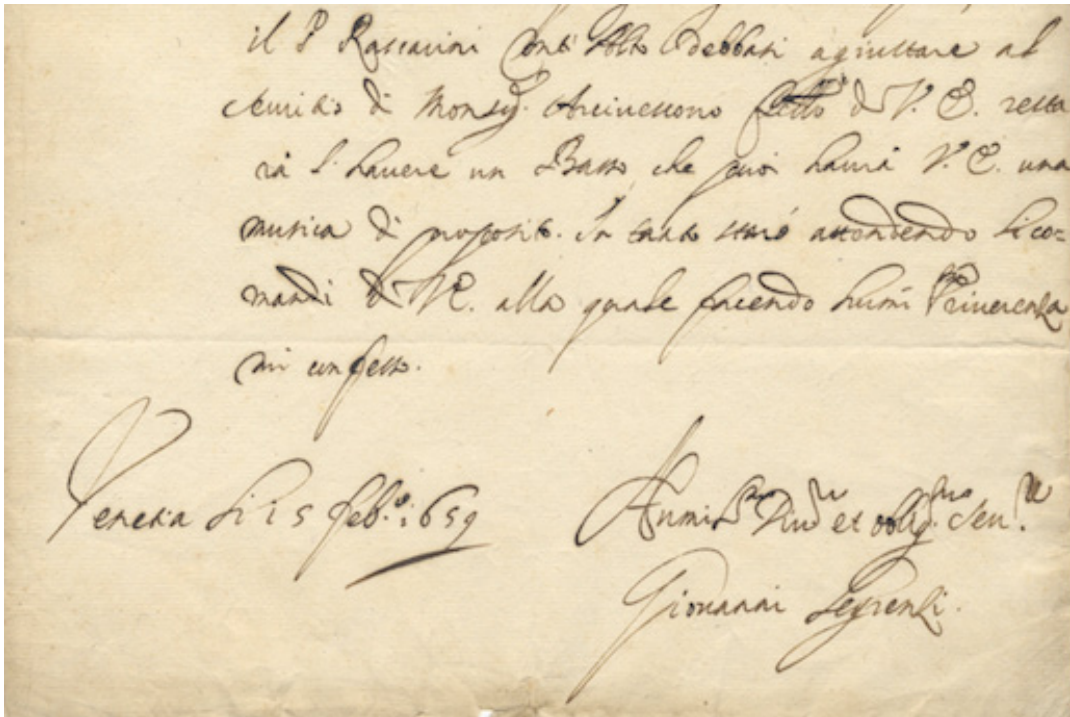 il P Rascarini Cont' Alto debbasi agiustare al
seruitio di Monsig. Arciuescouo fratto di V. E. resta
rà l'hauere un Basso, che poi haurà V. E. una
musica di proposito. In tanto starò attendendo li co=
mandi di V. E. alla quale facendo humma riuerenza
mi confesso.
Venetia li 15 feb.o 1659
Humilmo Diuo et obligmo Seu.re
Giouanni Legrenzi.